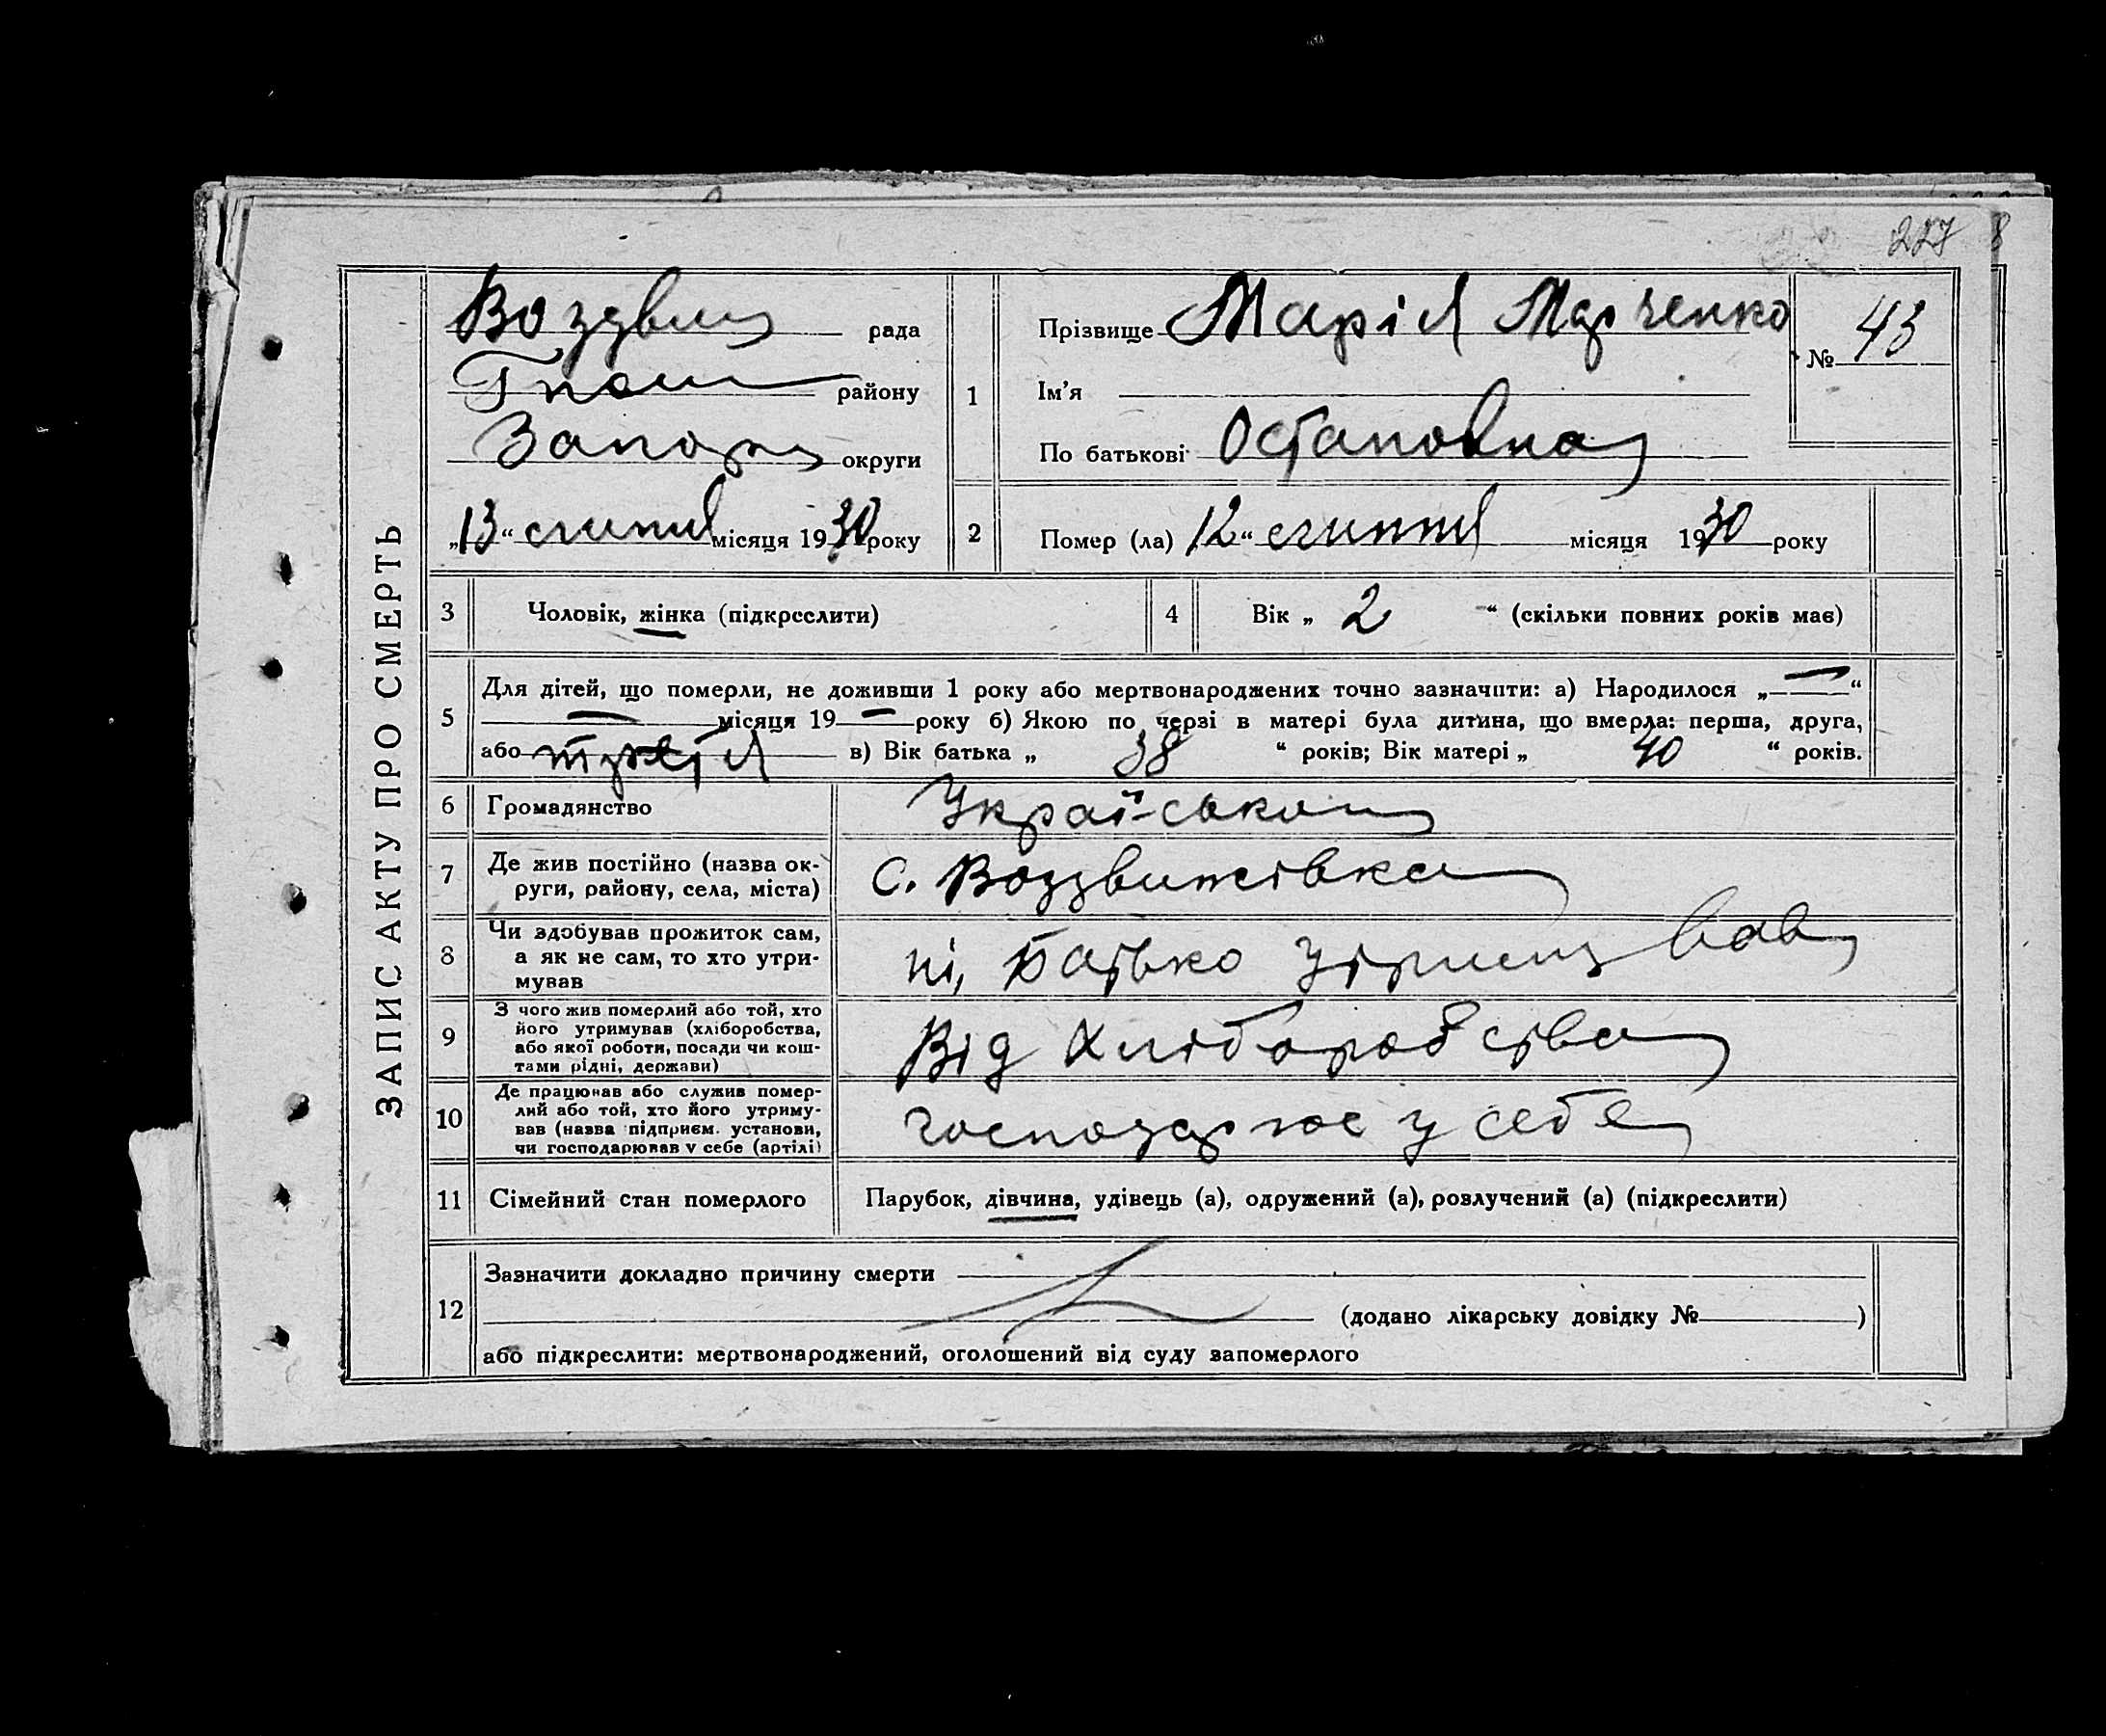 227 8
ЗАПИС АКТУ ПРО СМЕРТЬ
Воздвиж рада
району
Запоріз округи
„13“ січня місяця 1930 року
1
Прізвище Марія Марченко
№ 43
Ім'я
По батькові Остаповна
2
Помер (ла) 12“ січня місяця 1930 року
3 Чоловік, жінка (підкреслити)
4 Вік „ 2 “ (скільки повних років має)
5
Для дітей, що померли, не доживши 1 року або мертвонароджених точно зазначити: а) Народилося „ — “
— місяця 19 — року б) Якою по черзі в матері була дитина, що вмерла: перша, друга,
або третія в) Вік батька „ 38 “ років; Вік матері „ 40 “ років.
6 Громадянство Українською
7 Де жив постійно (назва ок-
руги, району, села, міста) с. Воздвижівка
8 Чи здобував прожиток сам,
а як не сам, то хто утри-
мував
ні, батько утримував
9 З чого жив померлий або той, хто
його утримував (хліборобства,
або якої роботи, посади чи кош-
тами рідні, держави)
Від хліборобства
10 Де працював або служив помер-
лий або той, хто його утриму-
вав (назва підприєм. установи,
чи господарював у себе (артілі)
господарює у себе
11 Сімейний стан померлого Парубок, дівчина, удівець (а), одружений (а), розлучений (а) (підкреслити)
12
Зазначити докладно причину смерти
(додано лікарську довідку № )
або підкреслити: мертвонароджений, оголошений від суду запомерлого